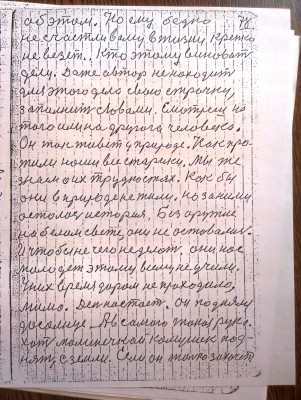 об этом. Но ему бедно 78
несчастливому в жизни крепко
не везет. Кто этому виноват
дели. Даже автор ненаходит
для этого дела свою строчку,
заполнит словами. Смотрели на
того или на другого человека.
Он так живет у природе. Как про-
жили наши все старики. Мы же
знаем о их трудностях. Как бы
они в природе не жили, но за ними
осталась история. Без оружие
на белом свете они не оставалися.
И чтобы не чего не делат, они нас
молодет этому всему не учили.
У них время даром не проходило,
мимо. Ден настает. Он подняля
до солнце. А в самого тока рука
хот малинечкой камушек под-
нят, с земли. Если он только захочет